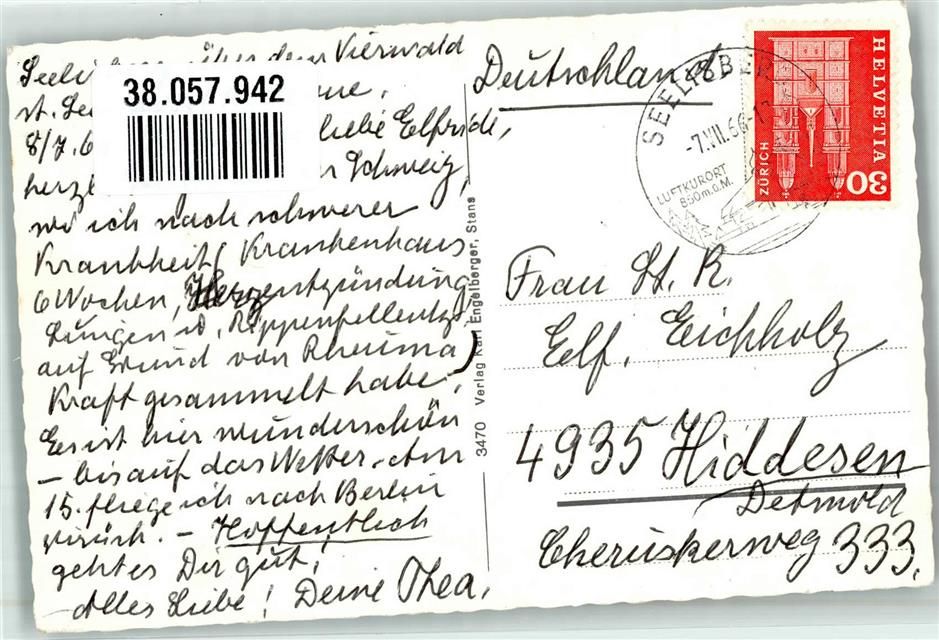 Seelisberg über dem Vierwald
st. See
8/7. 6 liebe Elfride,
herzl Schweiz,
wo ich nach schwerer
Krankheit (Krankenhaus
6 Wochen, Herzentzündung,
Lungen u. Rippenfellentz.
auf Grund von Rheuma)
Kraft gesammelt habe.
Es ist hier wunderschön
– bis auf das Wetter. Am
15. fliege ich nach Berlin
zurück. – Hoffentlich
geht es Dir gut!
Alles Liebe! Deine Thea.
38.057.942
3470 Verlag Karl Engelberger, Stans
Deutschland
SEELISBERG
-7.VII.66-
LUFTKURORT
850m.ü.M.
HELVETIA
ZÜRICH
30
Frau St. R.
Elf. Eichholz
4935 Hiddesen
Detmold
Cheruskerweg 333.